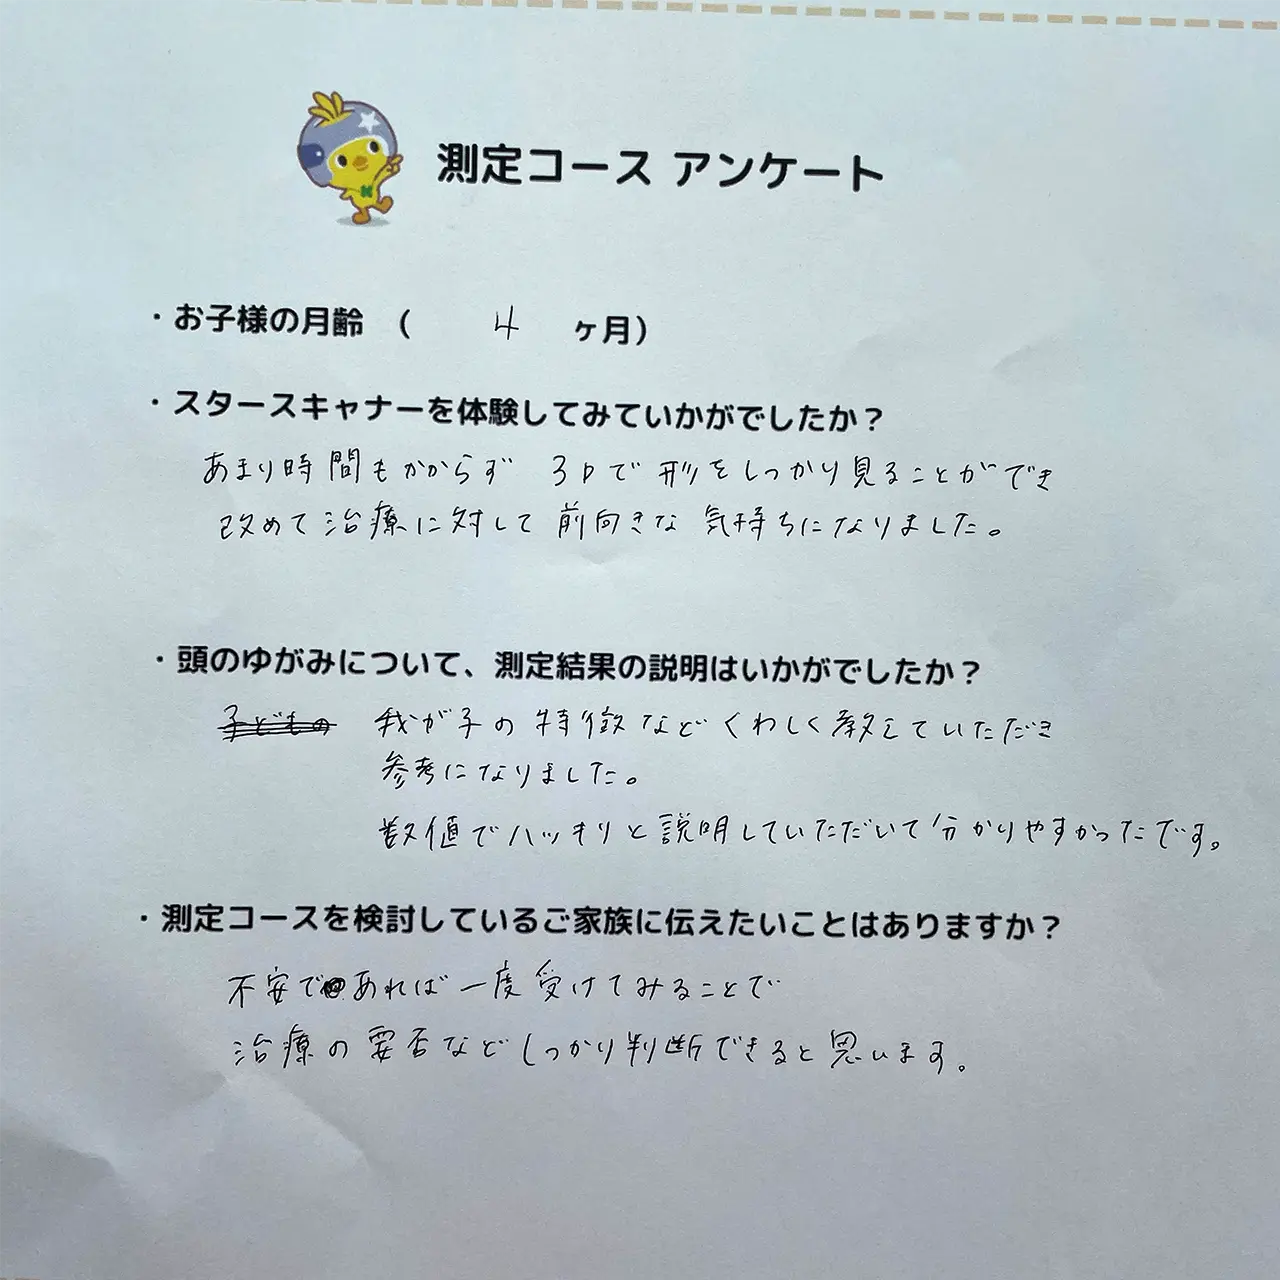 測定コース アンケート
・お子様の月齢 ( 4 ヶ月)
・スタースキャナーを体験してみていかがでしたか？
あまり時間もかからず 3Dで形をしっかり見ることができ
改めて治療に対して前向きな気持ちになりました。
・頭のゆがみについて、測定結果の説明はいかがでしたか？
子どもの 我が子の特徴などくわしく教えていただき
参考になりました。
数値でハッキリと説明していただいて分かりやすかったです。
・測定コースを検討しているご家族に伝えたいことはありますか？
不安であれば一度受けてみることで
治療の要否などしっかり判断できると思います。